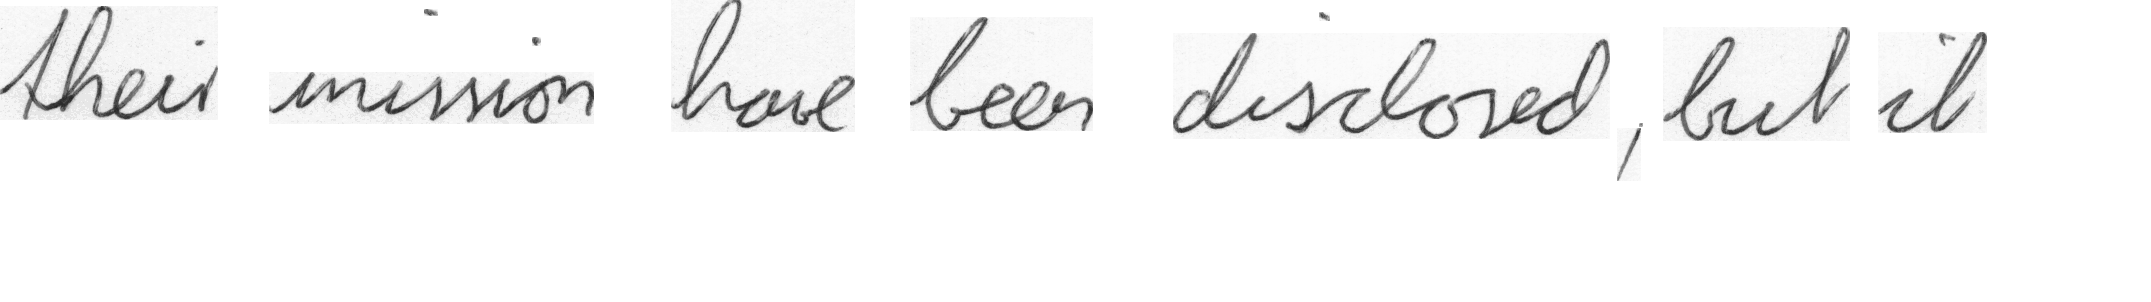 their mission have been disclosed, but it